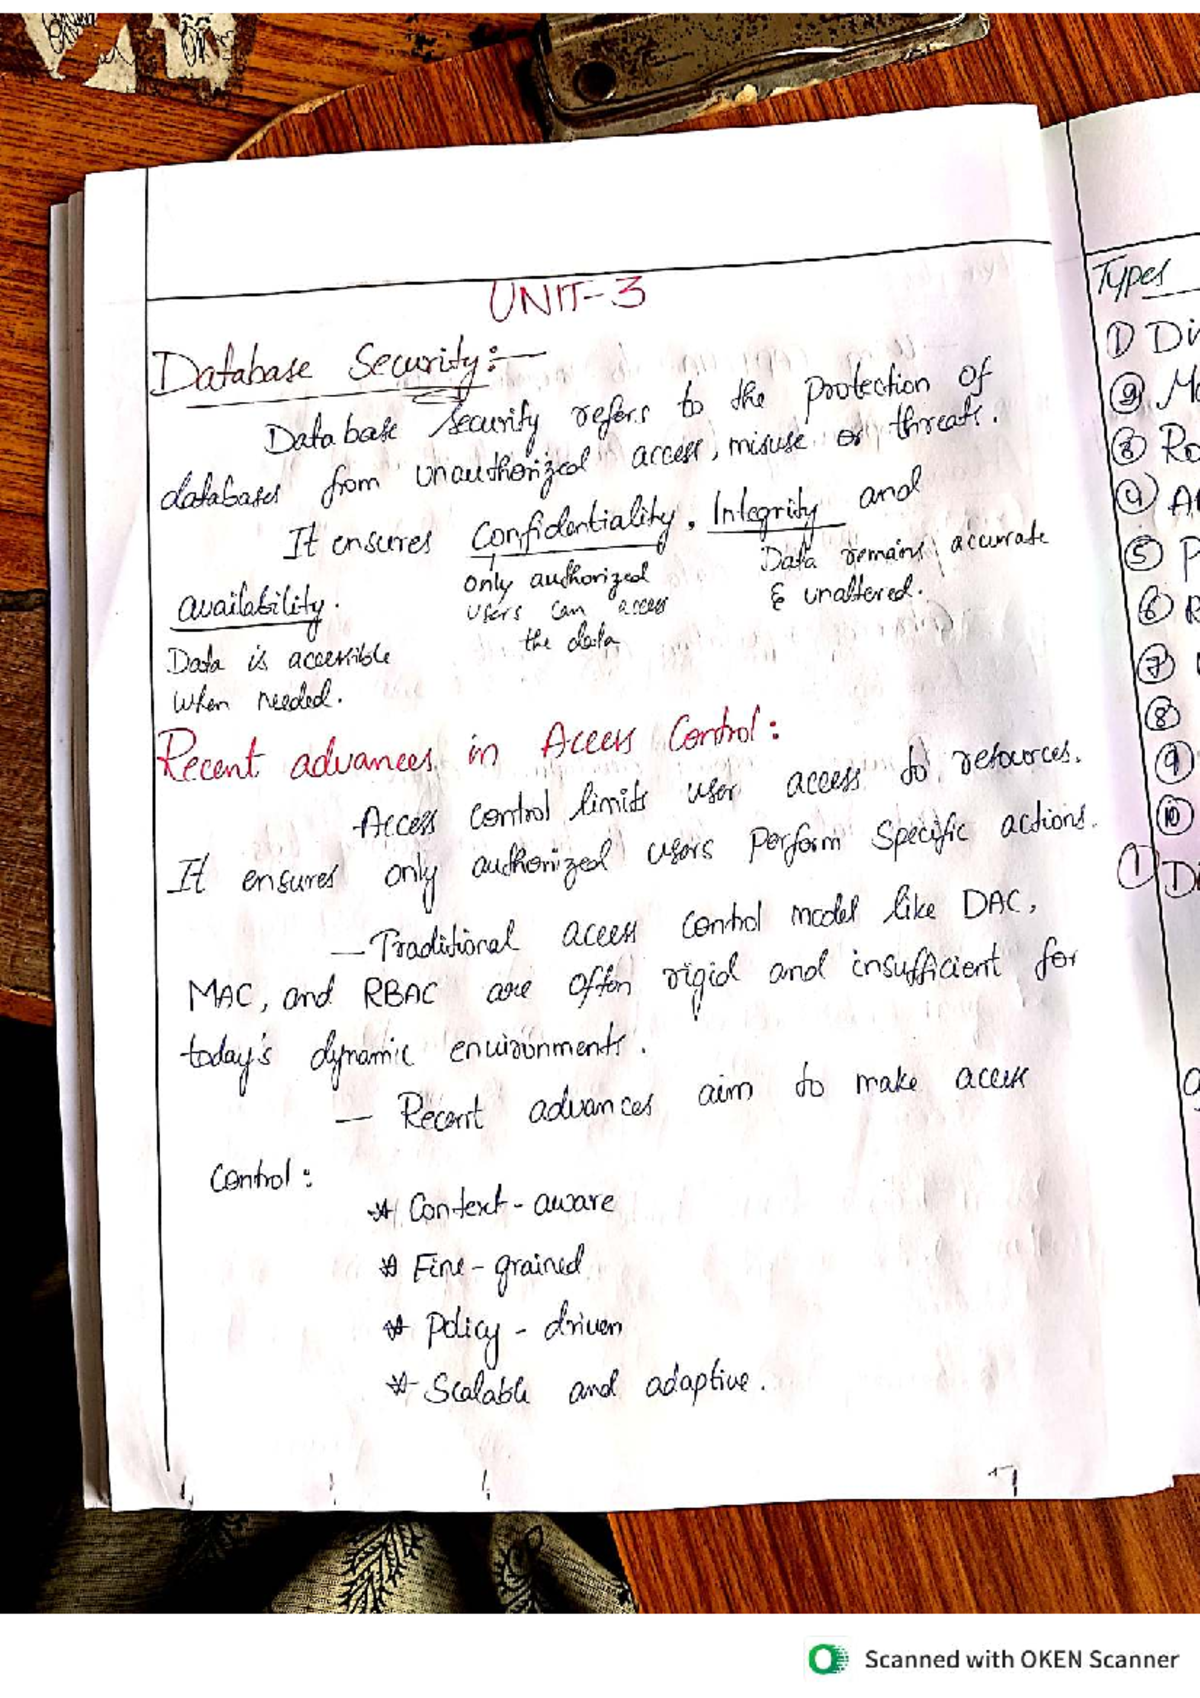 UNIT-3
Database Security:-
Database security refers to the protection of
databases from unauthorized access, misuse or threats.
It ensures Confidentiality, Integrity and
availability.
only authorized
users can access
the data
Data remains accurate
& unaltered.
Data is accessible
when needed.
Recent advances in Access Control:
-Access control limits user access to resources.
It ensures only authorized users perform specific actions.
- Traditional access control model like DAC,
MAC, and RBAC are often rigid and insufficient for
today's dynamic environments.
- Recent advances aim to make access
Control:
* Context-aware
* Fine-grained
* Policy-driven
* Scalable and adaptive.
Types
① Di
② Ma
③ Ro
④ At
⑤ P
⑥ R
⑦
⑧
⑨
⑩
① De
Scanned with OKEN Scanner